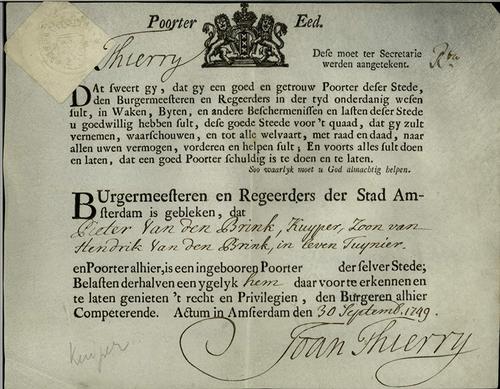 Poorter Eed.
Thierry
Dese moet ter Secretarie
werden aangetekent.
DAt sweert gy, dat gy een goed en getrouw Poorter deser Stede,
den Burgermeesteren en Regeerders in der tyd onderdanig wesen
sult, in Waken, Byten, en andere Beschermenissen en lasten deser Stede
u goedwillig hebben sult, dese goede Steede voor 't quaad, dat gy zult
vernemen, waarschouwen, en tot alle welvaart, met raad en daad, naar
allen uwen vermogen, vorderen en helpen sult; En voorts alles sult doen
en laten, dat een goed Poorter schuldig is te doen en te laten.
Soo waarlyk moet u God almachtig helpen.
BUrgermeesteren en Regeerders der Stad Am-
sterdam is gebleken, dat
Pieter Van den Brink, Kuyper, Zoon van
Hendrik Van den Brink, in leven Tuynier.
en Poorter alhier, is een ingebooren Poorter der selver Stede;
Belasten derhalven een ygelyk hem daar voor te erkennen en
te laten genieten 't recht en Privilegien, den Burgeren alhier
Competerende. Actum in Amsterdam den 30 Septemb. 1749.
Joan Thierry
Kuyper